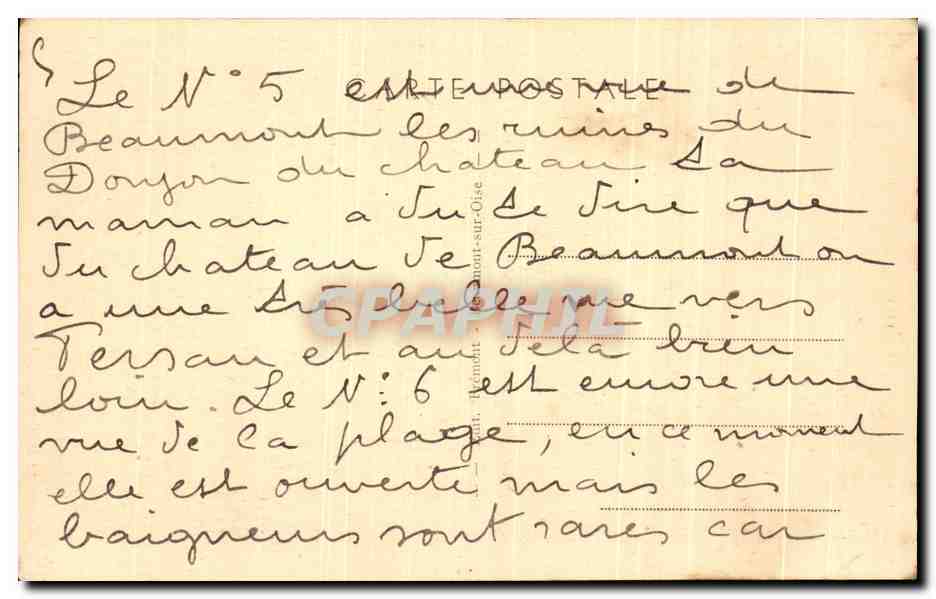 Le N° 5 est une vue de
CARTE POSTALE
Beaumont les ruines du
Donjon du chateau ta
maman a du te dire que
du chateau de Beaumont on
a une très belle vue vers
Persan et au delà bien
loin. Le N: 6 est encore une
vue de la plage, en ce moment
elle est ouverte mais les
baigneurs sont rares car
Frémont - Beaumont-sur-Oise
CPAPHIL